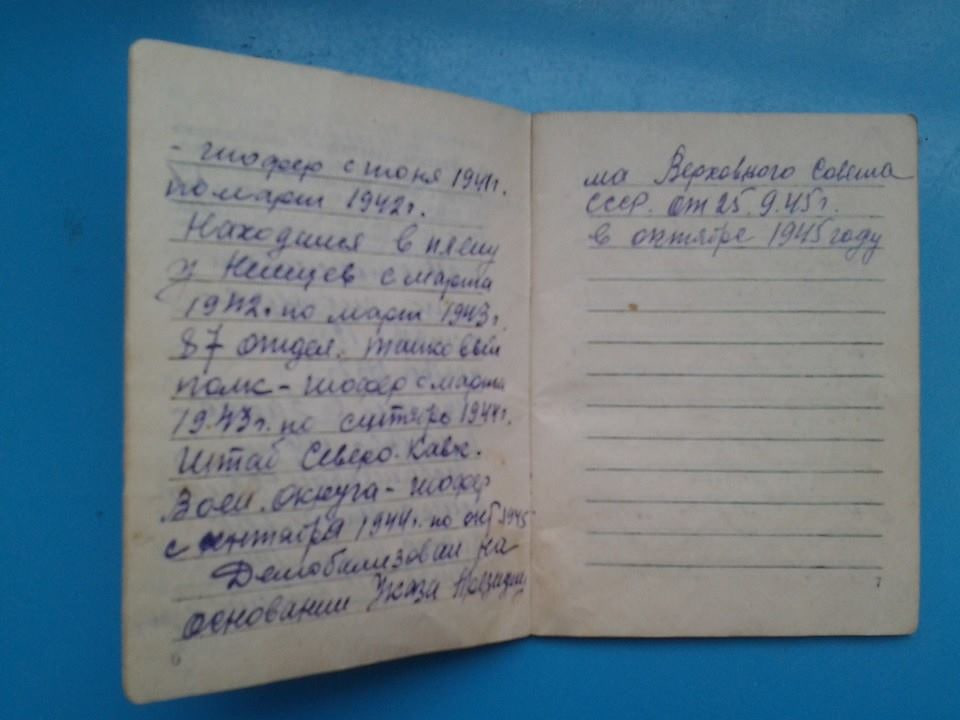 - шофер с июня 1941г.
по март 1942г.
Находился в плену
у Немцев с марта
1942г. по март 1943г.
87 отдел. танковый
полк - шофер с марта
1943г. по сентябрь 1944г.
Штаб Северо-Кавк.
Воен. округа - шофер
с сентября 1944г. по окт 1945
Демобилизован на
основании Указа Президиу
6
ма Верховного Совета
СССР. от 25.9.45г.
в октябре 1945 году
7